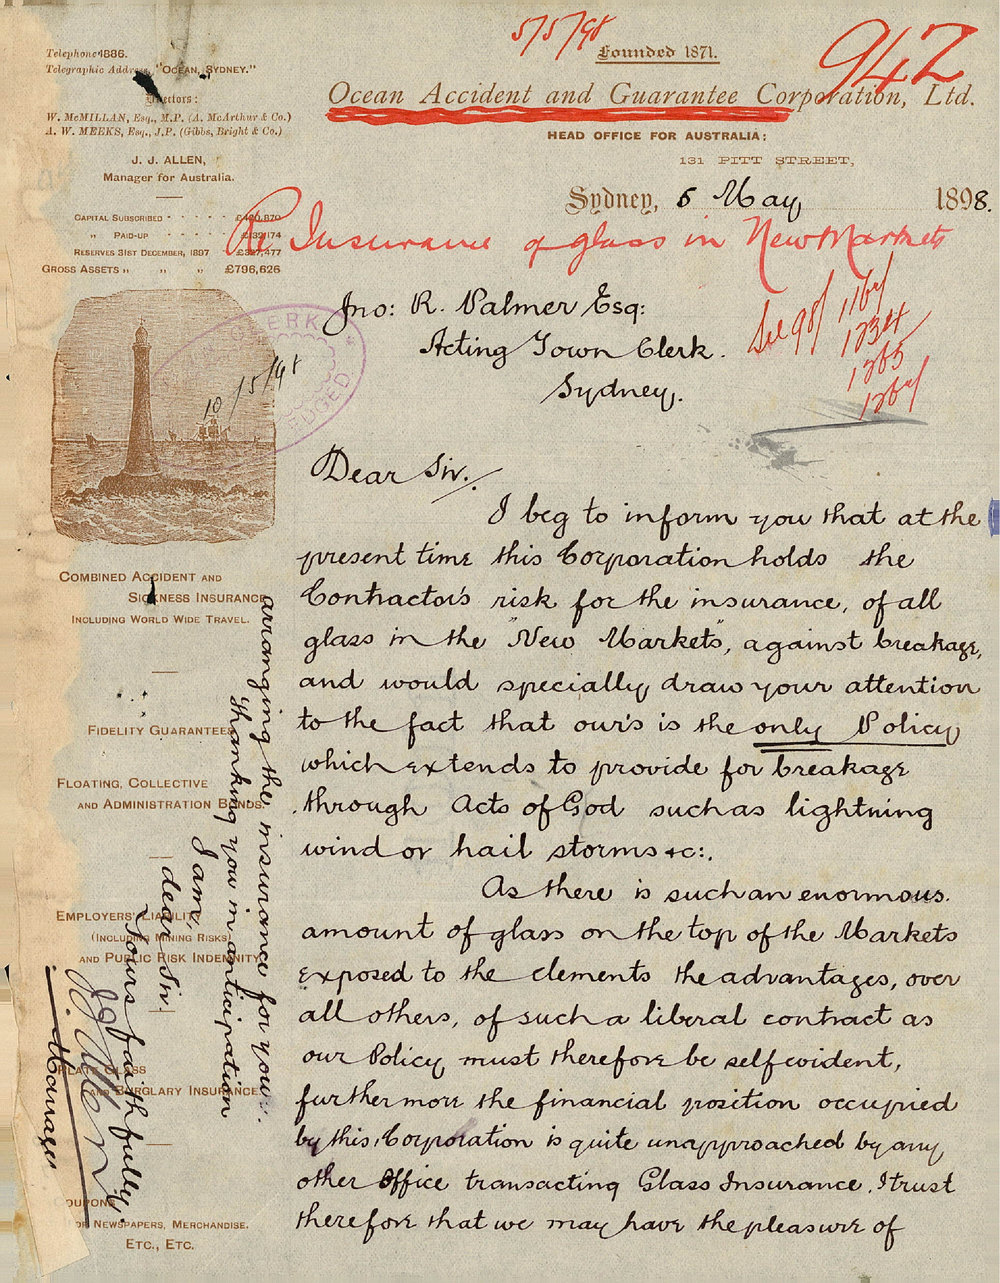 5/5/98
942
Founded 1871.
Ocean Accident and Guarantee Corporation, Ltd.
HEAD OFFICE FOR AUSTRALIA:
131 PITT STREET,
Sydney, 5 May 1898.
Telephone 1886.
Telegraphic Address, "OCEAN, SYDNEY."
Directors:
W. McMILLAN, Esq., M.P. (A. McArthur & Co.)
A. W. MEEKS, Esq., J.P. (Gibbs, Bright & Co.)
J. J. ALLEN,
Manager for Australia.
CAPITAL SUBSCRIBED
" PAID-UP
RESERVES 31ST DECEMBER, 1897
GROSS ASSETS " " " £796,626
Re Insurance of glass in New Markets
Jno: R. Palmer Esq:
Acting Town Clerk.
Sydney.
See 98/
1234
1265
CLERK
10/5/98
Dear Sir./
I beg to inform you that at the
present time this Corporation holds the
Contractor's risk for the insurance, of all
glass in the "New Markets", against breakage,
and would specially draw your attention
to the fact that our's is the only Policy
which extends to provide for breakage
through Acts of God such as lightning
wind or hail storms &c:.
As there is such an enormous.
amount of glass on the top of the Markets
exposed to the elements the advantages, over
all others, of such a liberal contract as
our Policy must therefore be self evident,
furthermore the financial position occupied
by this Corporation is quite unapproached by any
other Office transacting Glass Insurance. I trust
therefore that we may have the pleasure of
arranging the insurance for you.
Thanking you in anticipation
I am,
dear Sir.
Yours faithfully.
J. J. Allen
Manager
COMBINED ACCIDENT AND
SICKNESS INSURANCE
INCLUDING WORLD WIDE TRAVEL.
FIDELITY GUARANTEES
FLOATING, COLLECTIVE
AND ADMINISTRATION BONDS.
EMPLOYERS' LIABILITY
(INCLUDING MINING RISKS)
AND PUBLIC RISK INDEMNITY
PLATE GLASS
AND BURGLARY INSURANCE
COUPONS
FOR NEWSPAPERS, MERCHANDISE.
ETC., ETC.